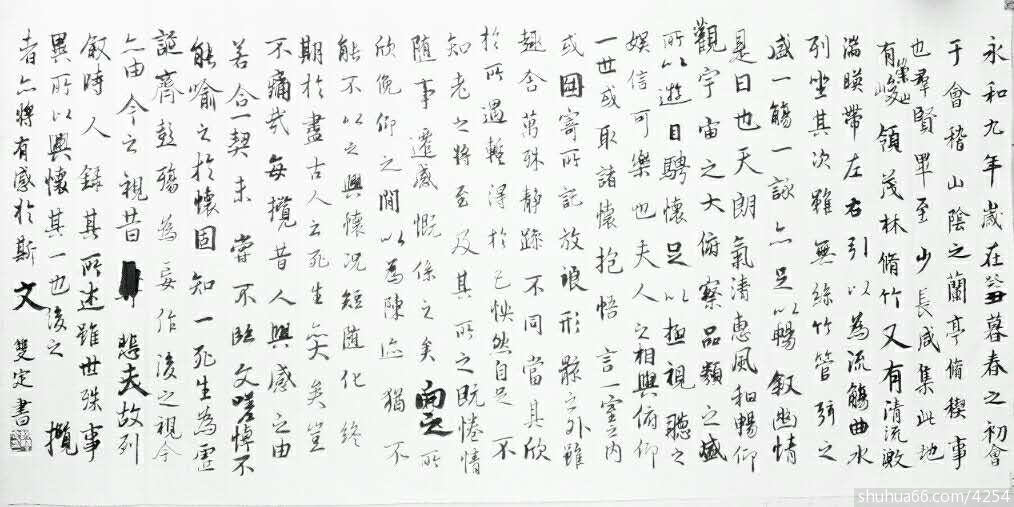 永和九年歲在癸丑暮春之初會
于會稽山陰之蘭亭脩稧事
也群賢畢至少長咸集此地
有崇山峻領茂林脩竹又有清流激
湍暎帶左右引以為流觴曲水
列坐其次雖無絲竹管弦之
盛一觴一詠亦足以暢叙幽情
是日也天朗氣清惠風和暢仰
觀宇宙之大俯察品類之盛
所以遊目騁懷足以極視聽之
娛信可樂也夫人之相與俯仰
一世或取諸懷抱悟言一室之內
或因寄所託放浪形骸之外雖
趣舍萬殊靜躁不同當其欣
於所遇暫得於己怏然自足不
知老之將至及其所之既惓情
隨事遷感慨係之矣向之所
欣俛仰之間以為陳迹猶不
能不以之興懷况短隨化終
期於盡古人云死生亦大矣豈
不痛哉每攬昔人興感之由
若合一契未嘗不臨文嗟悼不
能喻之於懷固知一死生為虛
誕齊彭殤為妄作後之視今
亦由今之視昔 悲夫故列
叙時人錄其所述雖世殊事
異所以興懷其一也後之攬
者亦將有感於斯文 雙定書
shuhua66.com/4254